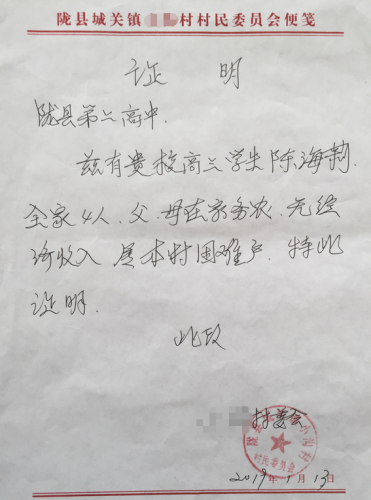 陇县城关镇 村村民委员会便笺
证 明
陇县第二高中.
兹有贵校高三学生陈海荆.
全家4人、父、母在家务农、无经
济收入 属本村困难户. 特此
证明.
此致
村委会
村民委员会
2019年1月13日